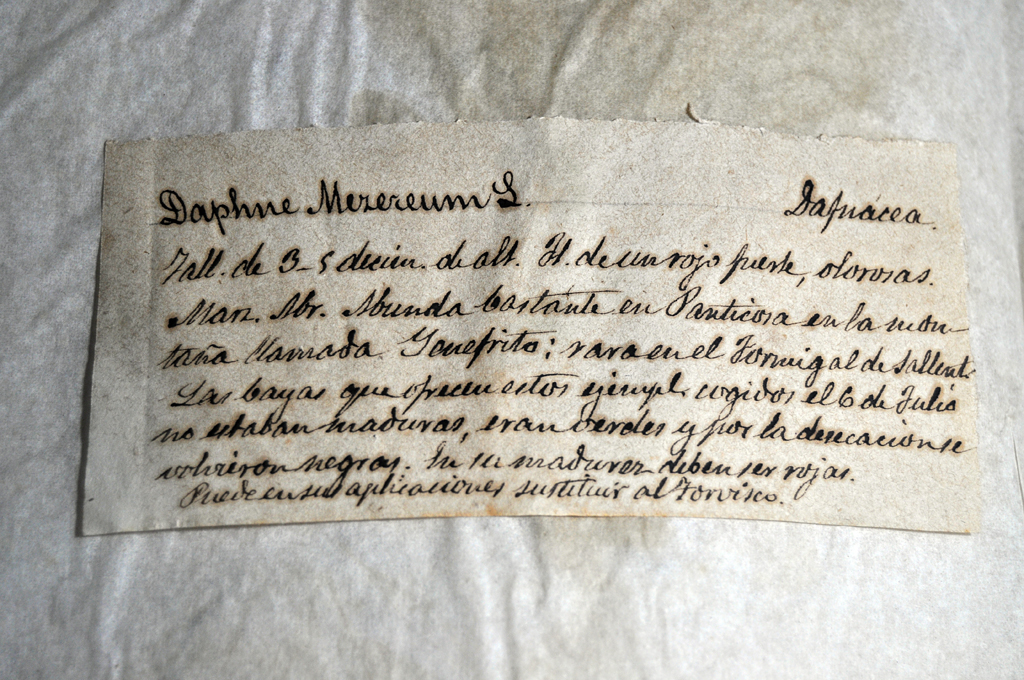 Daphne Mezereum L. Dafnácea.
Tall. de 3-5 decím. de alt. Fl. de un rojo fuerte, olorosas.
Marz. Abr. Abunda bastante en Panticosa en la mon-
taña llamada Yenefrito; rara en el Formigal de Sallent.
Las bayas que ofrecen estos ejempl. cogidos el 6 de Julio
no estaban maduras, eran verdes y por la desecacion se
volvieron negras. En su madurez deben ser rojas.
Puede en sus aplicaciones sustituir al Torvisco.